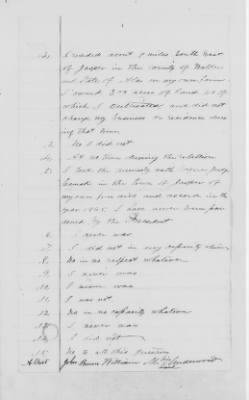 1. I resided about 9 miles South East
of Jasper in the county of Walker
and State of Ala on my own farm
I owned 200 acres of Land 40 of
which I cultivated and did not
change my business or residence dur
ing that time
2. No I did not
4. At no time during the rebellion
5. I took the amnesty oath before Judge
in the town of Jasper of
my own free will and accord in the
year 1865. I have never been par
doned by the President
6. I never was
7. I did not in any capacity whatever
8. No in no respect whatever
9. I never was
10. I never was
11. I was not
12. No in no capacity whatever
13. I never was
14. I did not
15. No to all this question
Attest John William his mark Underwood